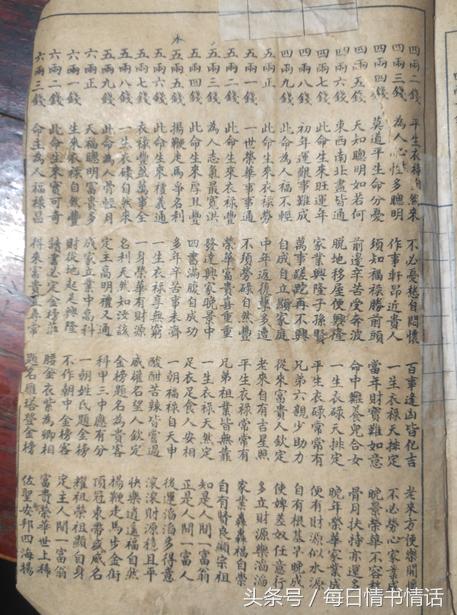 四兩二錢 平生衣祿自然來 不必憂愁自問懷 百事逢凶皆化吉 老來方便樂開懷
四兩三錢 為人心性多聰明 作事軒昂近貴人 一生衣祿天排定 不必勞心家業成
四兩四錢 莫道平生命分憂 須知福祿勝前頭 當年財寶難如意 晚景榮華不
四兩五錢 天知聰明如若何 前邊辛苦受奔波 命中難養兒合女 骨肉扶持亦運多
四兩六錢 東西南北盡皆通 脫地移屋便興隆 一生衣碌天排定 晚年榮華家業
四兩七錢 此命生來旺運年 家業興隆子孫賢 平生衣碌常常有 便有財源似水源
四兩八錢 初年運觀事難成 萬事蹉跎再不興 兄弟六親少助力 自有根基早晚成
四兩九錢 此命為人福不輕 自成自立顯家庭 從來富貴人欽定 使婢差奴任意行
五兩正 此命生來衣祿勞 中年返復幾多遭 老來自有吉星照 多立財源樂滔滔
五兩一錢 一世榮華事事通 不須勞碌自然榮 平生衣祿常常有 家業轟轟福自崇
五兩二錢 此命生來衣祿豐 榮華富貴喜重重 兄弟祖業皆無靠 自有賢良顯宗祖
五兩三錢 為人志氣最寬洪 發達興家晚景中 一生衣祿天然定 知是人間一富翁
五兩四錢 此命生來厚且豐 四書滿腹自成功 足衣足食人安相 正是人間一富人
五兩五錢 揚鞭走馬爭名利 多年辛苦事未濟 一朝福祿自天申 後運滔滔多得意
五兩六錢 此命生來禮義通 一生衣祿享無窮 酸酣苦辣皆嘗過 滾滾財源穩且平
五兩七錢 衣祿豐盈萬事全 一身榮華有財源 威權名望人欽 快樂逍遙福自然
五兩八錢 一生衣碌自然來 名利天然如汝該 金榜題名為貴客 揚鞭走馬步金街
五兩九錢 此命為人骨輕月 定主高明禮又通 科甲三中應有分 頂冠束帶威威名
六兩正 天福聰明富貴多 成家立業中高科 一朝姓氏題金榜 耀祖榮祖顯自身
六兩一錢 生來衣祿自然豐 財從地起足興隆 不作朝中金榜客 定主人間一富翁
六兩二錢 此命生來實可奇 讀書必定金榜 腰金衣紫為卿相 富貴榮華世上稀
六兩三錢 命主為人福祿昌 得來富貴異尋常 題名雁塔登金榜 佐聖安邦四海揚
头条号 / 每日情书情话